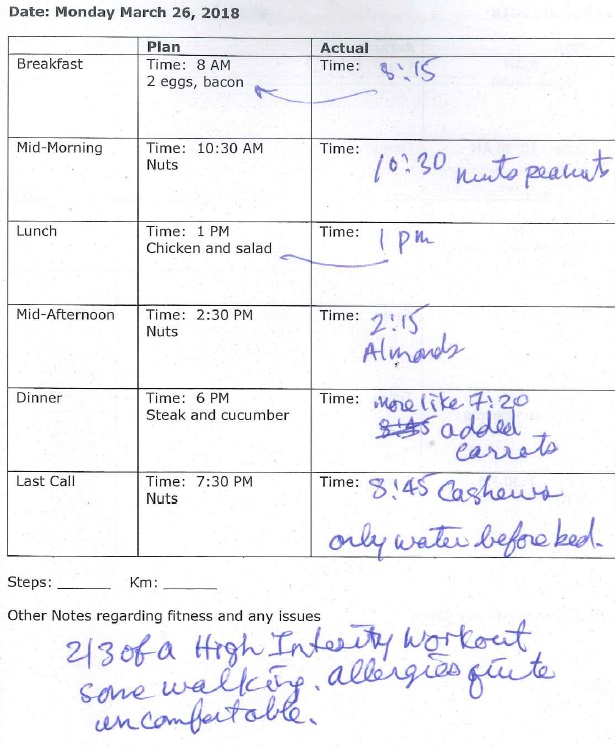 Date: Monday March 26, 2018
Plan Actual
Breakfast Time: 8 AM Time: 8:15
2 eggs, bacon
Mid-Morning Time: 10:30 AM Time:
Nuts 10:30 nuts peanuts
Lunch Time: 1 PM Time: 1 pm
Chicken and salad
Mid-Afternoon Time: 2:30 PM Time: 2:15
Nuts Almonds
Dinner Time: 6 PM Time: more like 7:20
Steak and cucumber 8:45 added
carrots
Last Call Time: 7:30 PM Time: 8:45 Cashews
Nuts
only water before bed.
Steps: ______ Km: ______
Other Notes regarding fitness and any issues
2/3 of a High Intesity Workout
some walking. allergies quite
uncomfortable.